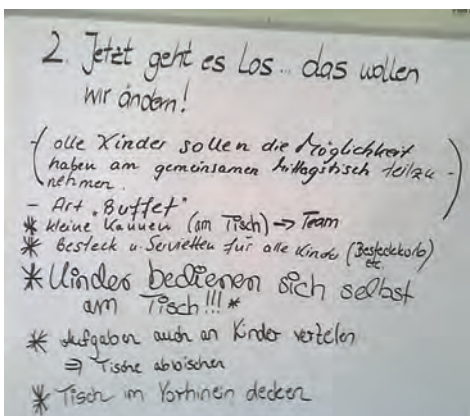 2. Jetzt geht es Los... das wollen
wir ändern!
- (alle Kinder sollen die Möglichkeit
haben am gemeinsamen Mittagstisch teilzu-
nehmen.)
- Art „Buffet"
* kleine Kannen (am Tisch) → Team
* Besteck u. Servietten für alle Kinder (Besteckkorb)
etc.
* Kinder bedienen sich selbst
am Tisch!!! *
* Aufgaben auch an Kinder verteilen
⇒ Tische abwischen
* Tisch im Vorhinein decken